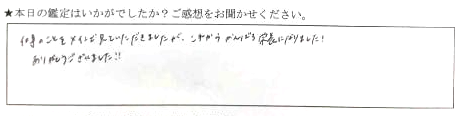 ★本日の鑑定はいかがでしたか？ご感想をお聞かせください。
仕事のことをメインに見ていただきましたが、これからがんばる糧になりました！
ありがとうございました!!